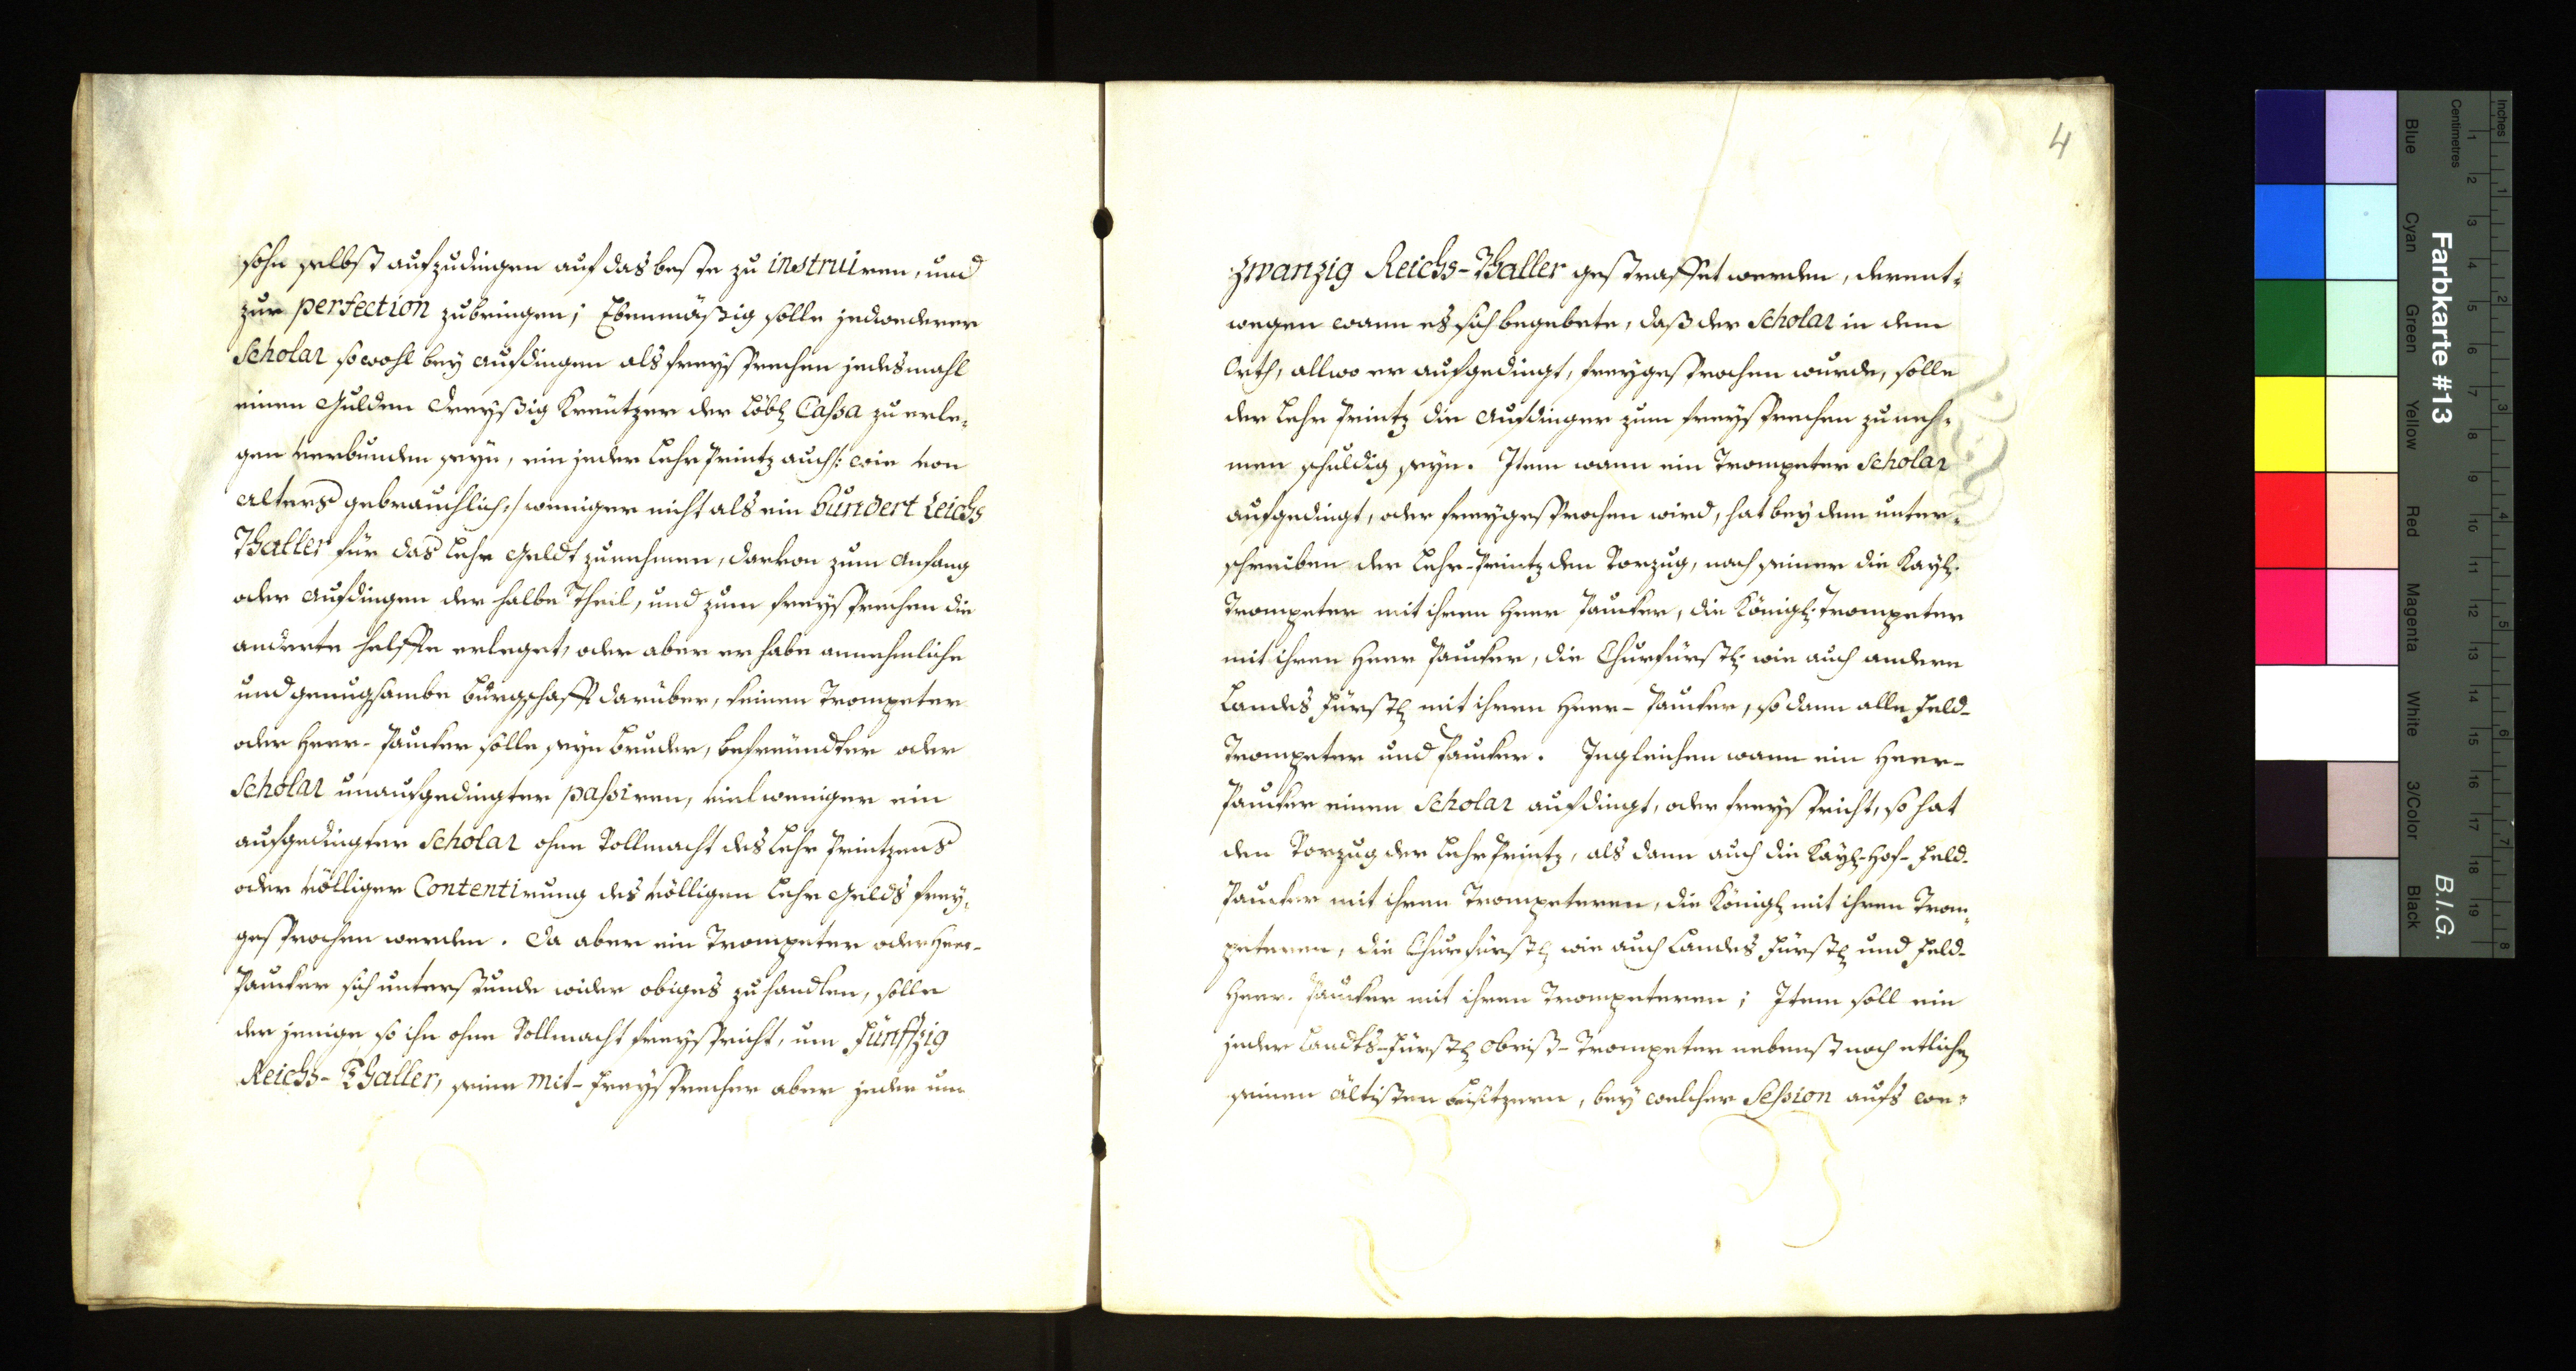 sohn selbst aufzudingen auf das beste zu instruiren, und
zur perfection zubringen; Ebenmäßig solle jedwederer
Scholar sowohl bey aufdingen als freysprechen jedesmahl
einen Gulden dreyßig Kreützer der Löbl Cassa zu erle¸
gen verbunden seyn, ein jeder Lehr Printz auch /: wie von
alters gebrauchlich :/ weniger nicht als ein hundert Reichs
Thaller für das Lehr Geldt zunehmen, darvon zum anfang
oder aufdingen der halbe Theil, und zum freysprechen die
anderte helffte erleget, oder aber er habe annehmliche
und genugsambe bürgschafft darüber, keinen Trompeter
oder Heer-Paucker solle seyn bruder, befreündter oder
Scholar unaufgedingter passiren, viel weniger ein
aufgedingter Scholar ohne Vollmacht des Lehr Printzens
oder völliger Contentirung des völligen Lehr Gelds frey¸
gesprochen werden. Da aber ein Trompeter oder Heer-
Paucker sich unterstunde wider obiges zu handlen, solle
der jenige so ihn ohne Vollmacht freyspricht, um Fünffzig
Reichs-Thaller, seine Mit-Freysprecher aber jeder um
4
zwanzig Reichs-Thaller gestraffet werden, derent¸
wegen wann es sich begebete, daß der Scholar in dem
Orth, allwo er aufgedingt, freygesprochen wurde, solle
der Lehr Printz die Aufdinger zum freysprechen zu neh¸
men schuldig seyn. Item wann ein Trompeter Scholar
aufgedingt, oder freygesprochen wird, hat bey dem unter¸
schreiben der Lehr-Printz den Vorzug, nach seiner die Kayl.
Trompeter mit ihren Heer Paucker, die Königl. Trompeter
mit ihren Heer Paucker, die Churfürstl. wie auch andere
Landes Fürstl mit ihren Heer-Paucker, so dann alle Feld-
Trompeter und Paucker. Ingleichen wann ein Heer-
Paucker einen Scholar aufdingt, oder freyspricht, so hat
den Vorzug der Lehr Printz, als dann auch die Kayl-Hof-Feld-
Paucker mit ihren Trompeteren, die Königl mit ihren Trom¸
peteren, die Churfürstl wie auch Landes Fürstl und Feld-
Heer-Paucker mit ihren Trompeteren; Item soll ein
jeder Landts-Fürstl Obrist-Trompeter nebenst noch etlichen
seinen ältisten beisitzern, bey welcher Session aufs we¸
Farbkarte #13
B.I.G.
Inches
Centimetres
1 2 3 4 5 6 7 8
1 2 3 4 5 6 7 8 9 10 11 12 13 14 15 16 17 18 19
Blue
Cyan
Green
Yellow
Red
Magenta
White
3/Color
Black